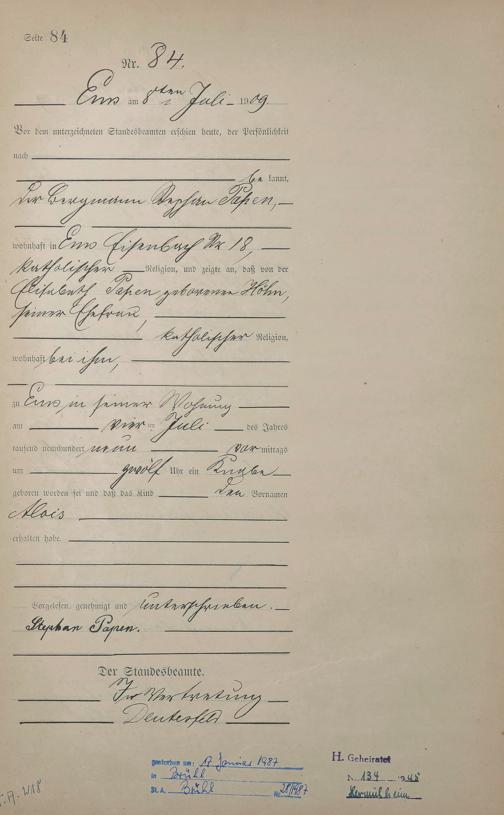 Seite 84
Nr. 84.
Ems am 8ten Juli 1909
Vor dem unterzeichneten Standesbeamten erschien heute, der Persönlichkeit
nach
bekannt,
der Bergmann Stephan Papen,
wohnhaft in Ems Eisenbach Nr 18,
katholischer Religion, und zeigte an, daß von der
Elisabeth Papen geborenen Höhn,
seiner Ehefrau,
katholischer Religion,
wohnhaft bei ihm,
zu Ems in seiner Wohnung
am vier Juli des Jahres
tausend neunhundert neun vormittags
um zwölf Uhr ein Knabe
geboren worden sei und daß das Kind den Vornamen
Alois
erhalten habe.
Vorgelesen, genehmigt und unterschrieben.
Stephan Papen.
Der Standesbeamte.
In Vertretung
gestorben am: 17 Januar 1987
in Brühl
St. A. Brühl Nr. 28/1987
H. Geheiratet
N. 134 1945
Hermülheim